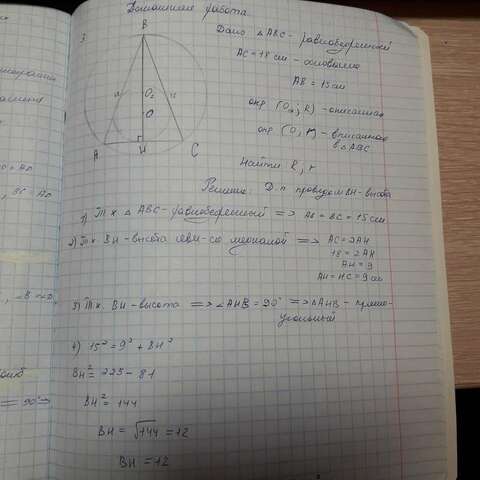 Домашняя работа
3.
Дано △ABC - равнобедренный
AC = 18 см - основание
AB = 15 см
окр (O₂; R) - описанная
окр (O, r) - вписанная
в △ABC
Найти R, r
Решение: Д.п проведём BH - высота
1) Т.к △ABC - равнобедренный => AB = BC = 15 см
2) Т.к BH - высота явл-ся медианой => AC = 2AH
18 = 2AH
AH = 9
AH = HC = 9 см
3) Т.к. BH - высота => ∠AHB = 90° => △AHB - прямо-
угольный
4) 15² = 9² + BH²
BH² = 225 - 81
BH² = 144
BH = √144 = 12
BH = 12
B
O₂
O
A
H
C
90°